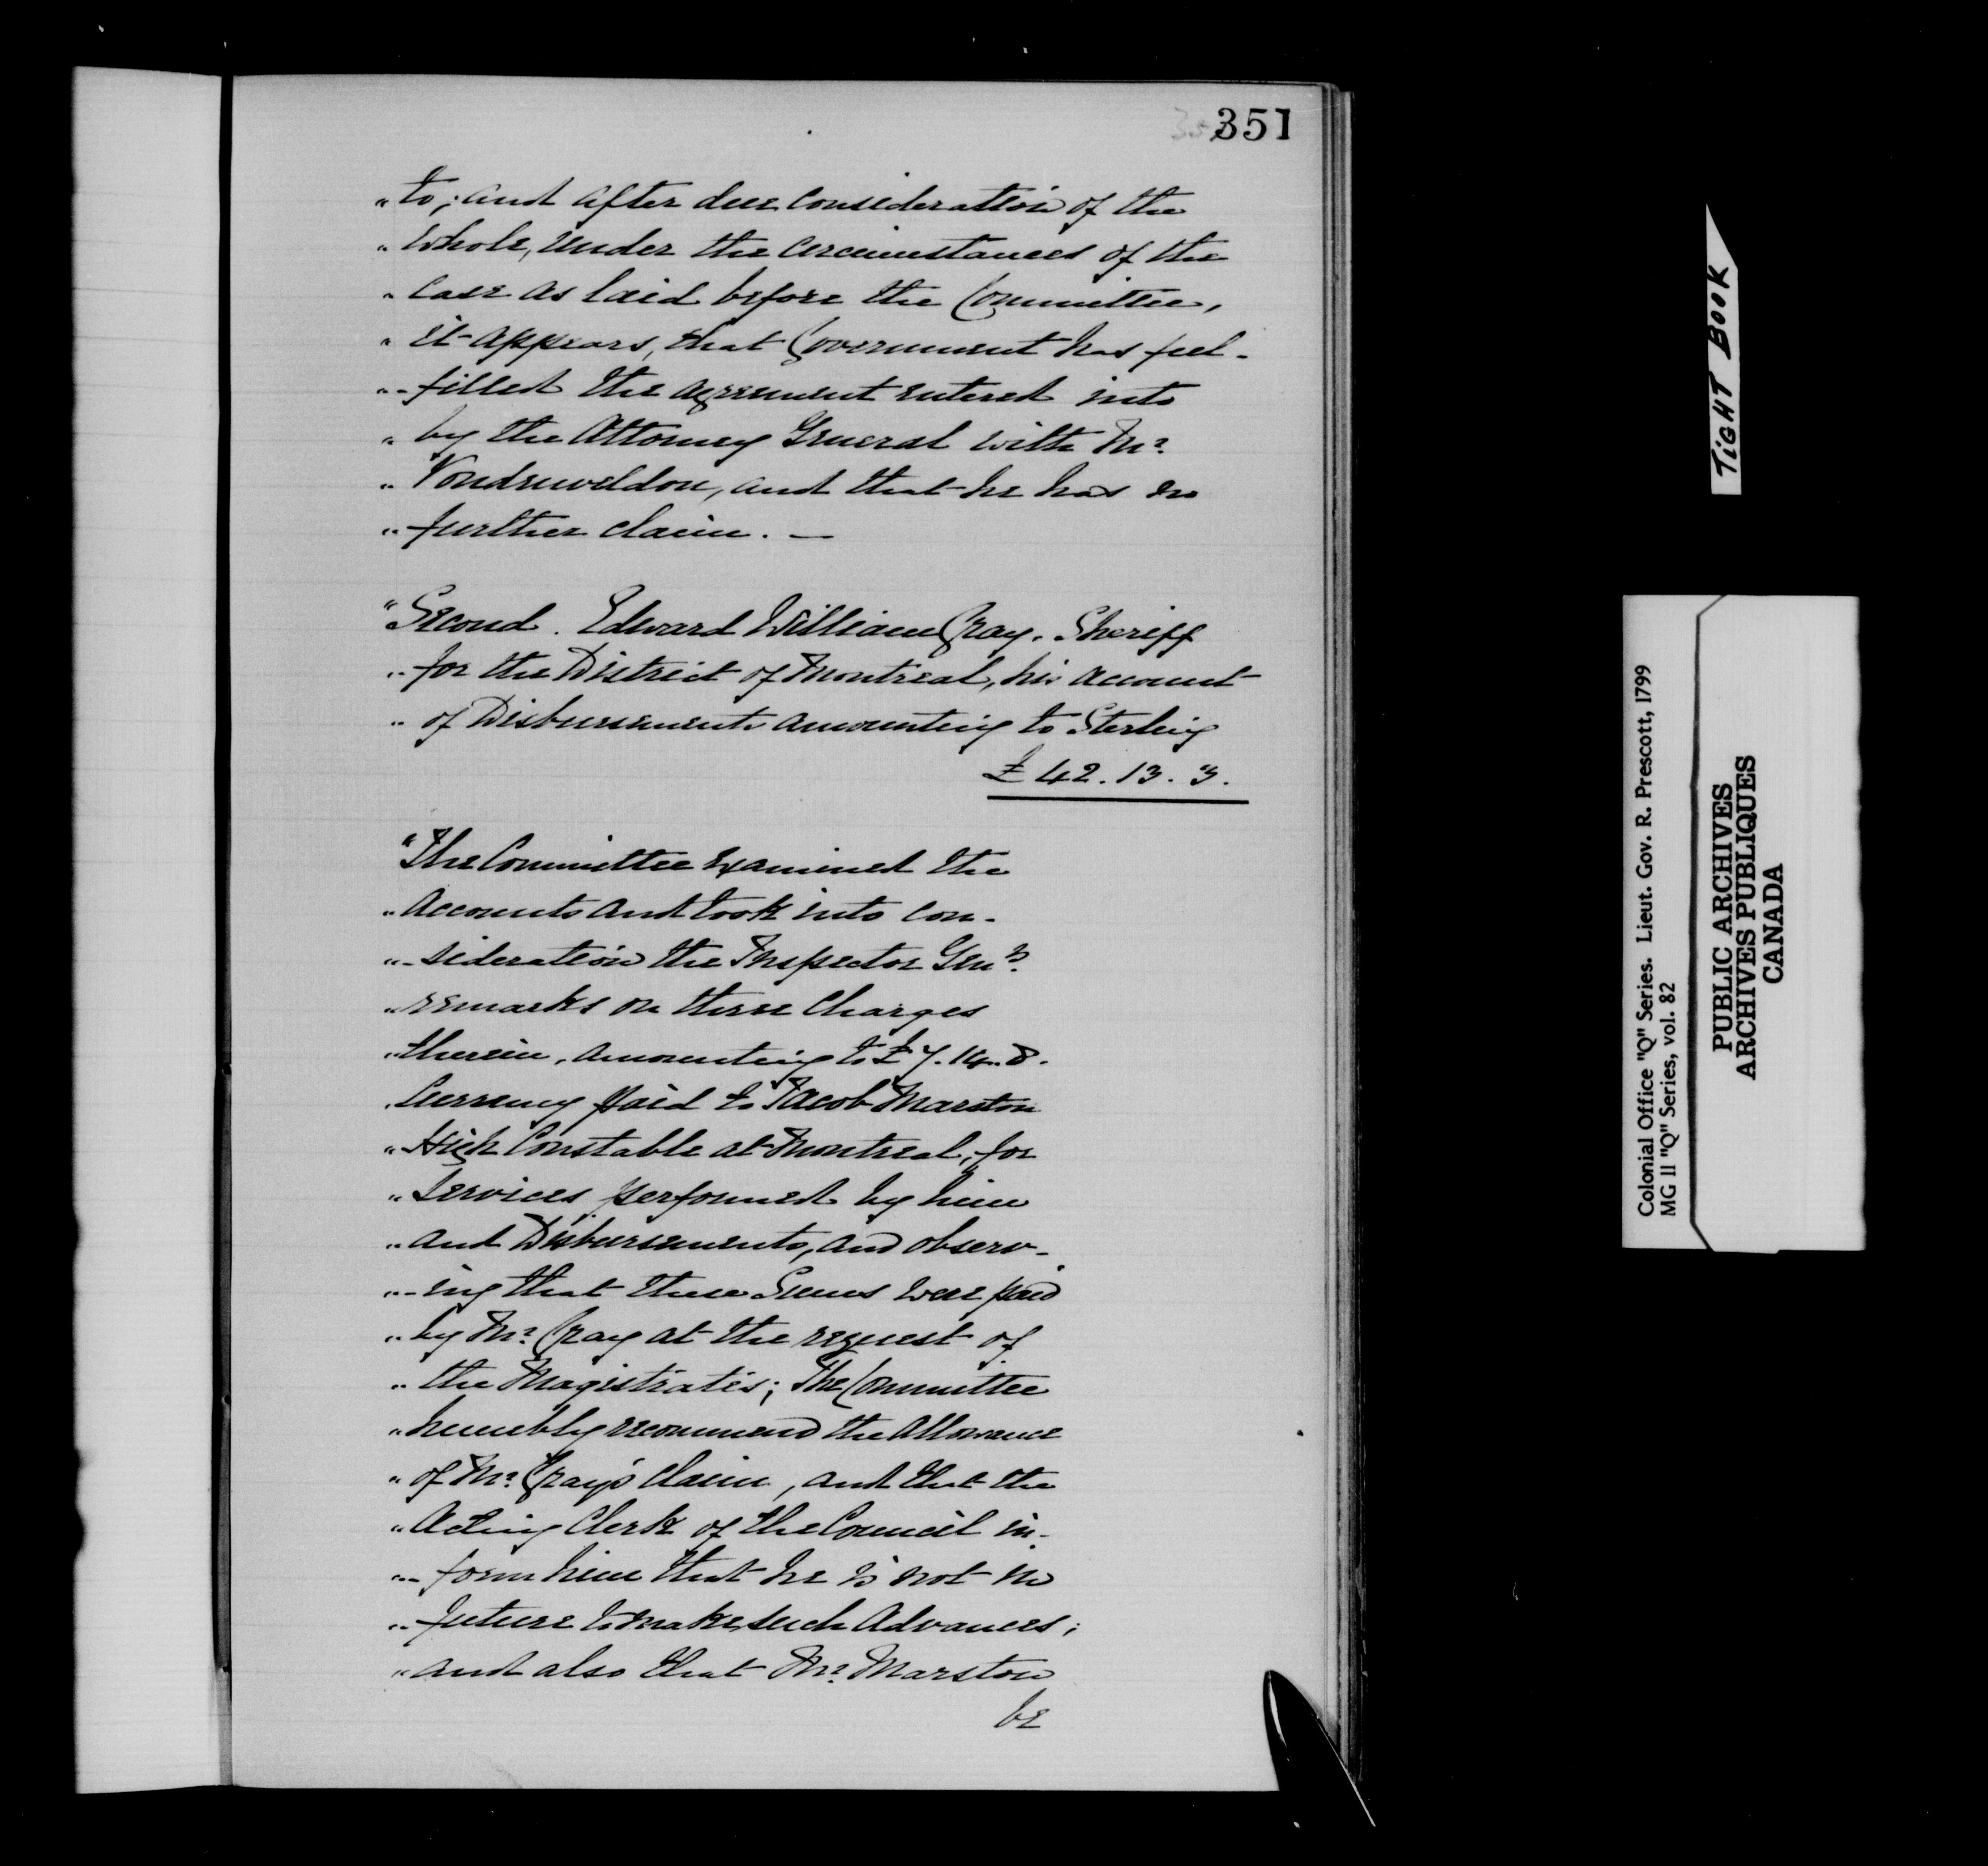 351
" to; and after due consideration of the
" whole, under the circumstances of the
" Case as laid before the Committee,
" it appears, that Government has ful-
" -filled the agreement entered into
" by the Attorney General with Mr.
" Vondenveldon, and that he has no
" further claim. —
" Second. Edward William Gray, Sheriff
" for the District of Montreal, his account
" of Disbursements amounting to Sterling
£ 42. 13. 3.
" The Committee Examined the
" Accounts and took into con-
" -sideration the Inspector Genls.
" remarks on three Charges
" therein, amounting to £7. 14. 8.
" Currency paid to Jacob Marston
" High Constable at Montreal, for
" Services performed by him
" and Disbursements, and observ-
" -ing that these Sums were paid
" by Mr. Gray at the request of
" the Magistrates; The Committee
" humbly recommend the Allowance
" of Mr. Gray's Claim, and that the
" Acting Clerk of the Council in-
" -form him that he is not in
" future to make such Advances;
" and also that Mr. Marston
be
TIGHT BOOK
Colonial Office "Q" Series. Lieut. Gov. R. Prescott, 1799
MG 11 "Q" Series, vol. 82
PUBLIC ARCHIVES
ARCHIVES PUBLIQUES
CANADA